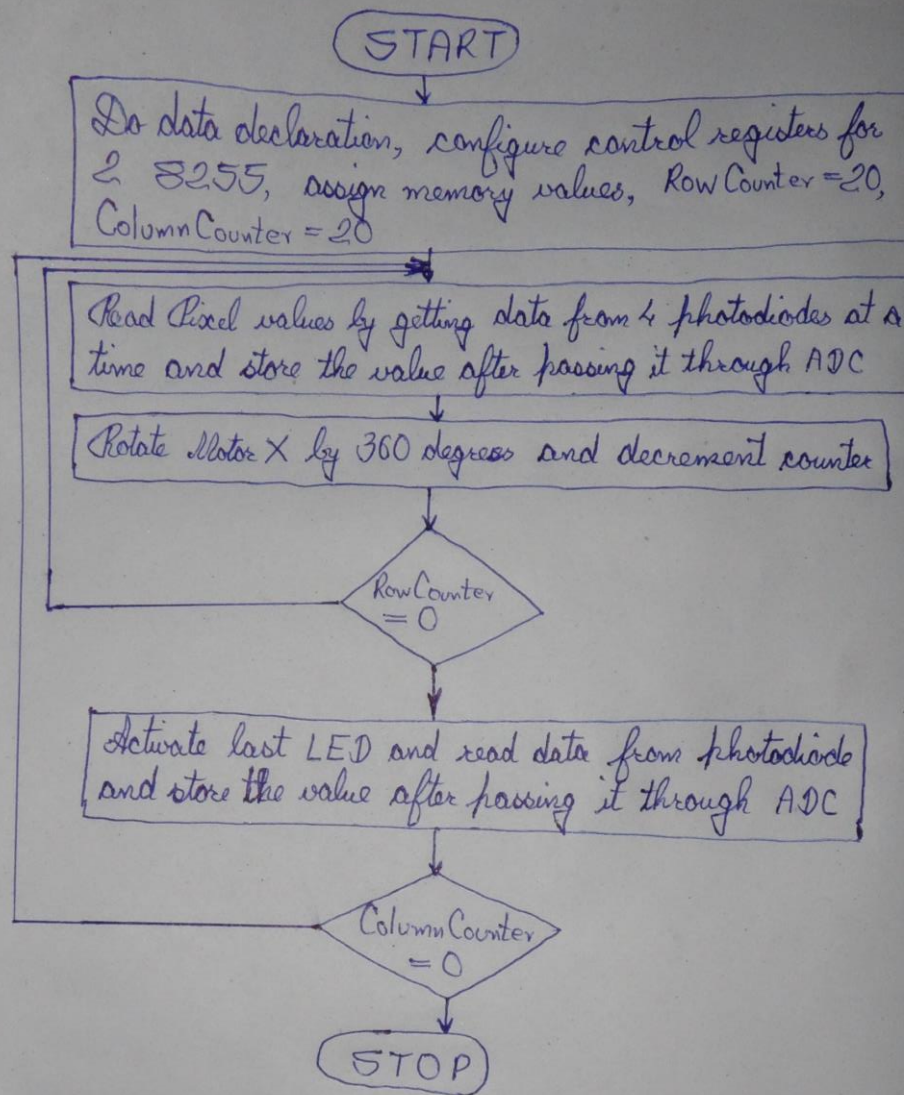 START
Do data declaration, configure control registers for
2 8255, assign memory values, RowCounter=20,
ColumnCounter = 20
Read Pixel values by getting data from 4 photodiodes at a
time and store the value after passing it through ADC
Rotate Motor X by 360 degrees and decrement counter
RowCounter
= 0
Activate last LED and read data from photodiode
and store the value after passing it through ADC
ColumnCounter
= 0
STOP